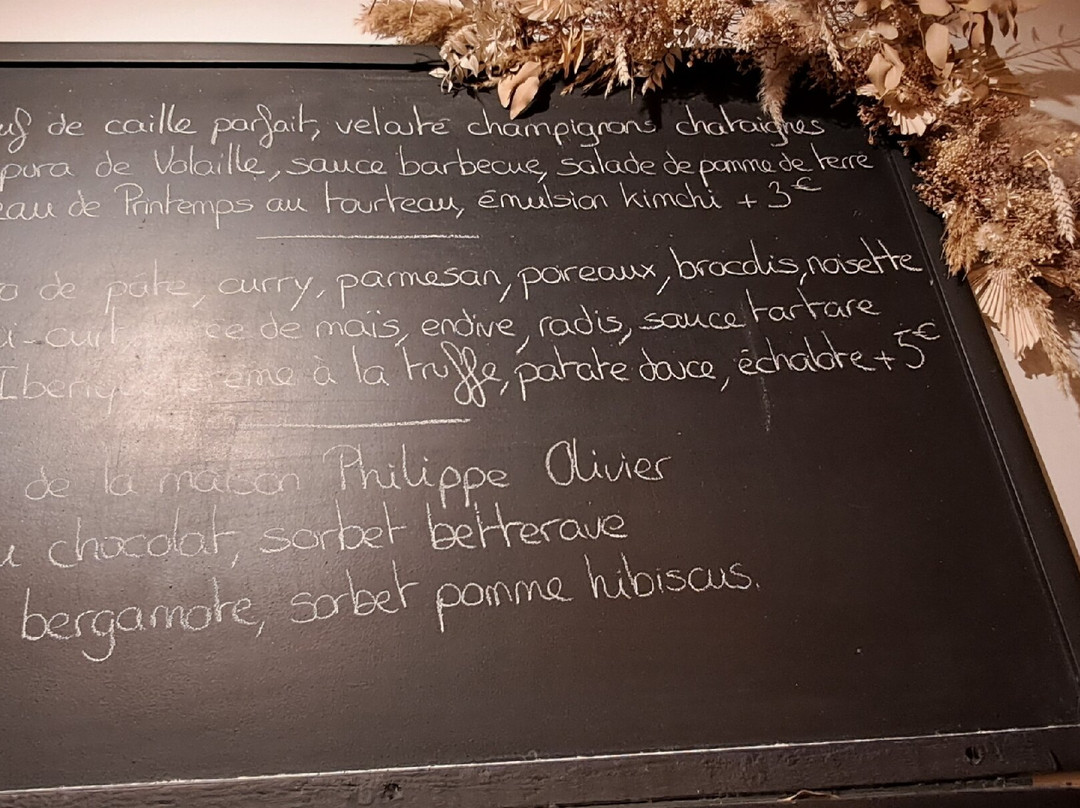 de caille parfait, velouté champignons chataignes
de Volaille, sauce barbecue, salade de pomme de terre
de Printemps au tourteau, émulsion kimchi + 3€
de pâte, curry, parmesan, poireaux, brocolis, noisette
de maïs, endive, radis, sauce tartare
à la truffe, patate douce, échalote + 5€
de la maison Philippe Olivier
chocolat, sorbet betterave
bergamote, sorbet pomme hibiscus.